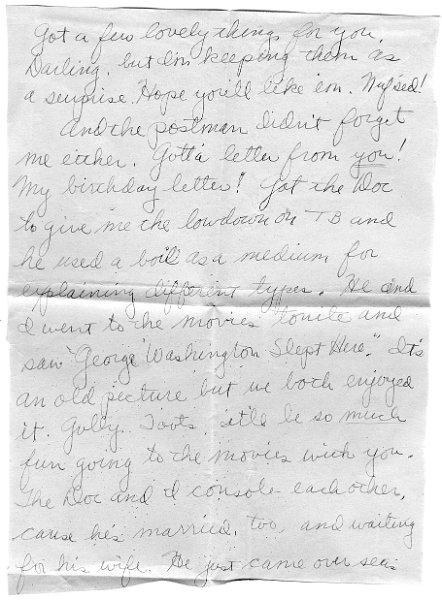 Got a few lovely things for you,
Darling, but I'm keeping them as
a surprise. Hope you'll like 'em. Nuf sed!
And the postman didn't forget
me either. Gotta letter from you!
My birthday letter! Got the Doc
to give me the lowdown on TB and
he used a boil as a medium for
explaining different types. He and
I went to the movies tonite and
saw "George Washington Slept Here." It's
an old picture but we both enjoyed
it. Golly, Toots, it'll be so much
fun going to the movies with you.
The Doc and I console each other,
cause he's married, too, and waiting
for his wife. He just came over seas